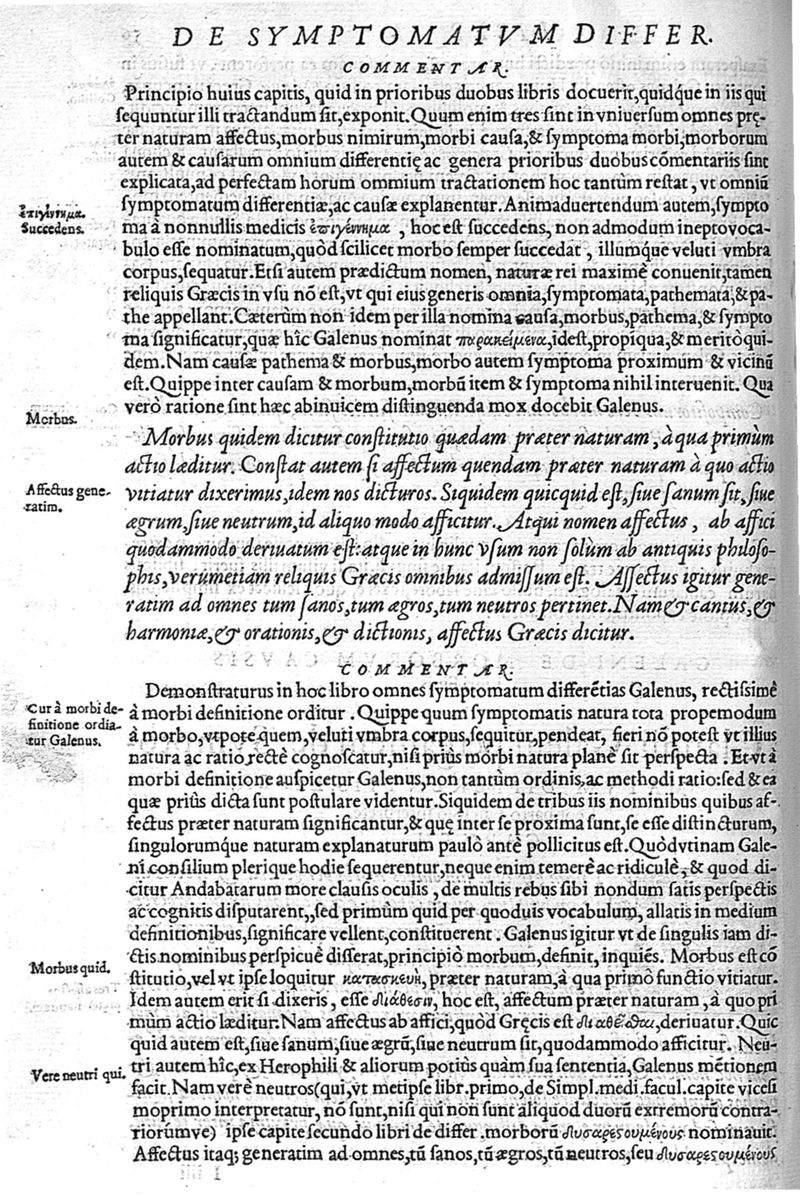 DE SYMPTOMATVM DIFFER.
COMMENTAR.
Principio huius capitis, quid in prioribus duobus libris docuerit, quidq́ue in iis qui
sequuntur illi tractandum sit, exponit. Quum enim tres sint in vniuersum omnes pręter
naturam affectus, morbus nimirum, morbi causa, & symptoma morbi, morborum
autem & causarum omnium differentię ac genera prioribus duobus cōmentariis sint
explicata, ad perfectam horum ommium tractationem hoc tantùm restat, vt omniū
symptomatum differentiæ, ac causæ explanentur. Animaduertendum autem, sympto
ἐπιγέννημα.
Succedens.
ma à nonnullis medicis ἐπιγέννημα, hoc est succedens, non admodum inepto voca-
bulo esse nominatum, quòd scilicet morbo semper succedat, illumq́ue veluti vmbra
corpus, sequatur. Etsi autem prædictum nomen, naturæ rei maximè conuenit, tamen
reliquis Græcis in vsu nō est, vt qui eius generis omnia, symptomata, pathemata, & pa-
the appellant. Cæterùm non idem per illa nomina causa, morbus, pathema, & sympto
ma significatur, quæ hîc Galenus nominat παρακείμενα, idest, propiqua, & meritò qui-
dem. Nam causæ pathema & morbus, morbo autem symptoma proximum & vicinū
est. Quippe inter causam & morbum, morbū item & symptoma nihil interuenit. Qua
verò ratione sint hæc abinuicem distinguenda mox docebit Galenus.
Morbus.
Morbus quidem dicitur constitutio quædam præter naturam, à qua primùm
actio læditur. Constat autem si affectum quendam præter naturam à quo actio
Affectus gene-
ratim.
vitiatur dixerimus, idem nos dicturos. Siquidem quicquid est, siue sanum sit, siue
ægrum, siue neutrum, id aliquo modo afficitur. Atqui nomen affectus, ab affici
quodammodo deriuatum est: atque in hunc vsum non solùm ab antiquis philoso-
phis, verumetiam reliquis Græcis omnibus admissum est. Affectus igitur gene-
ratim ad omnes tum sanos, tum ægros, tum neutros pertinet. Nam & cantus, &
harmoniæ, & orationis, & dictionis, affectus Græcis dicitur.
COMMENTAR.
Demonstraturus in hoc libro omnes symptomatum differētias Galenus, rectissimè
Cur à morbi de-
finitione ordia-
tur Galenus.
à morbi definitione orditur. Quippe quum symptomatis natura tota propemodum
à morbo, vtpote quem, veluti vmbra corpus, sequitur, pendeat, fieri nō potest vt illius
natura ac ratio rectè cognoscatur, nisi priùs morbi natura planè sit perspecta. Et vt à
morbi definitione auspicetur Galenus, non tantùm ordinis, ac methodi ratio: sed & ea
quæ priùs dicta sunt postulare videntur. Siquidem de tribus iis nominibus quibus af-
fectus præter naturam significantur, & quę inter se proxima sunt, se esse distincturum,
singulorumq́ue naturam explanaturum paulò antè pollicitus est. Quòd vtinam Gale-
ni consilium plerique hodie sequerentur, neque enim temerè ac ridiculè, & quod di-
citur Andabatarum more clausis oculis, de multis rebus sibi nondum satis perspectis
ac cognitis disputarent,, sed primùm quid per quoduis vocabulum, allatis in medium
definitionibus, significare vellent, constituerent. Galenus igitur vt de singulis iam di-
ctis nominibus perspicuè disserat, principiò morbum, definit, inquiēs. Morbus est cō
Morbus quid.
stitutio, vel vt ipse loquitur κατασκευὴ, præter naturam, à qua primò functio vitiatur.
Idem autem erit si dixeris, esse διάθεσιν, hoc est, affectum præter naturam, à quo pri
mùm actio læditur. Nam affectus ab affici, quòd Gręcis est διαθέσθαι, deriuatur. Quic
quid autem est, siue sanum, siue ægrū, siue neutrum sit, quodammodo afficitur. Neu-
Vere neutri qui.
tri autem hîc, ex Herophili & aliorum potiùs quàm sua sententia, Galenus mētionem
facit. Nam verè neutros (qui, vt metipse libr. primo, de Simpl. medi. facul. capite vicesi
moprimo interpretatur, nō sunt, nisi qui non sunt aliquod duorū extremorū contra-
riorúmve) ipse capite secundo libri de differ. morborū δυσαρεσουμένους nominauit.
Affectus itaq; generatim ad omnes, tū sanos, tū ægros, tū neutros, seu δυσαρεσουμένους